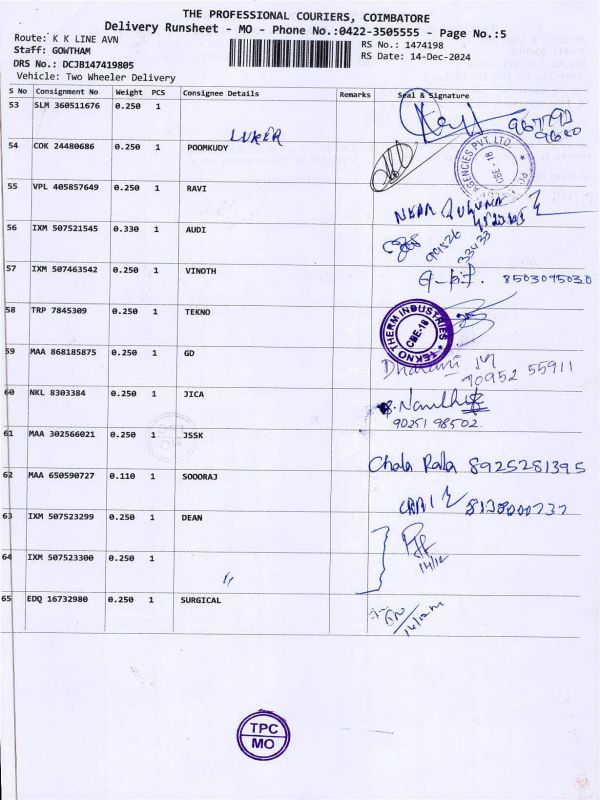 THE PROFESSIONAL COURIERS, COIMBATORE
Delivery Runsheet - MO - Phone No.:0422-3505555 - Page No.:5
Route: K K LINE AVN
Staff: GOWTHAM
DRS No.: DCJB147419805
Vehicle: Two Wheeler Delivery
RS No.: 1474198
RS Date: 14-Dec-2024
S No Consignment No Weight PCS Consignee Details Remarks Seal & Signature
53 SLM 360511676 0.250 1
54 COK 24480686 0.250 1 POOMKUDY
AGENCIES PVT. LTD. CBE-18
55 VPL 405857649 0.250 1 RAVI
56 IXM 507521545 0.330 1 AUDI
57 IXM 507463542 0.250 1 VINOTH
8503095030
58 TRP 7845309 0.250 1 TEKNO
TEKNO THERM INDUSTRIES CBE-18
59 MAA 868185875 0.250 1 GD
Dharani
70952 55911
60 NKL 8303384 0.250 1 JICA
90251 98502
61 MAA 302566021 0.250 1 JSSK
Chala 8925281395
62 MAA 650590727 0.110 1 SOOORAJ
8128000737
63 IXM 507523299 0.250 1 DEAN
14/12
64 IXM 507523300 0.250 1
〃
65 EDQ 16732980 0.250 1 SURGICAL
TPC
MO